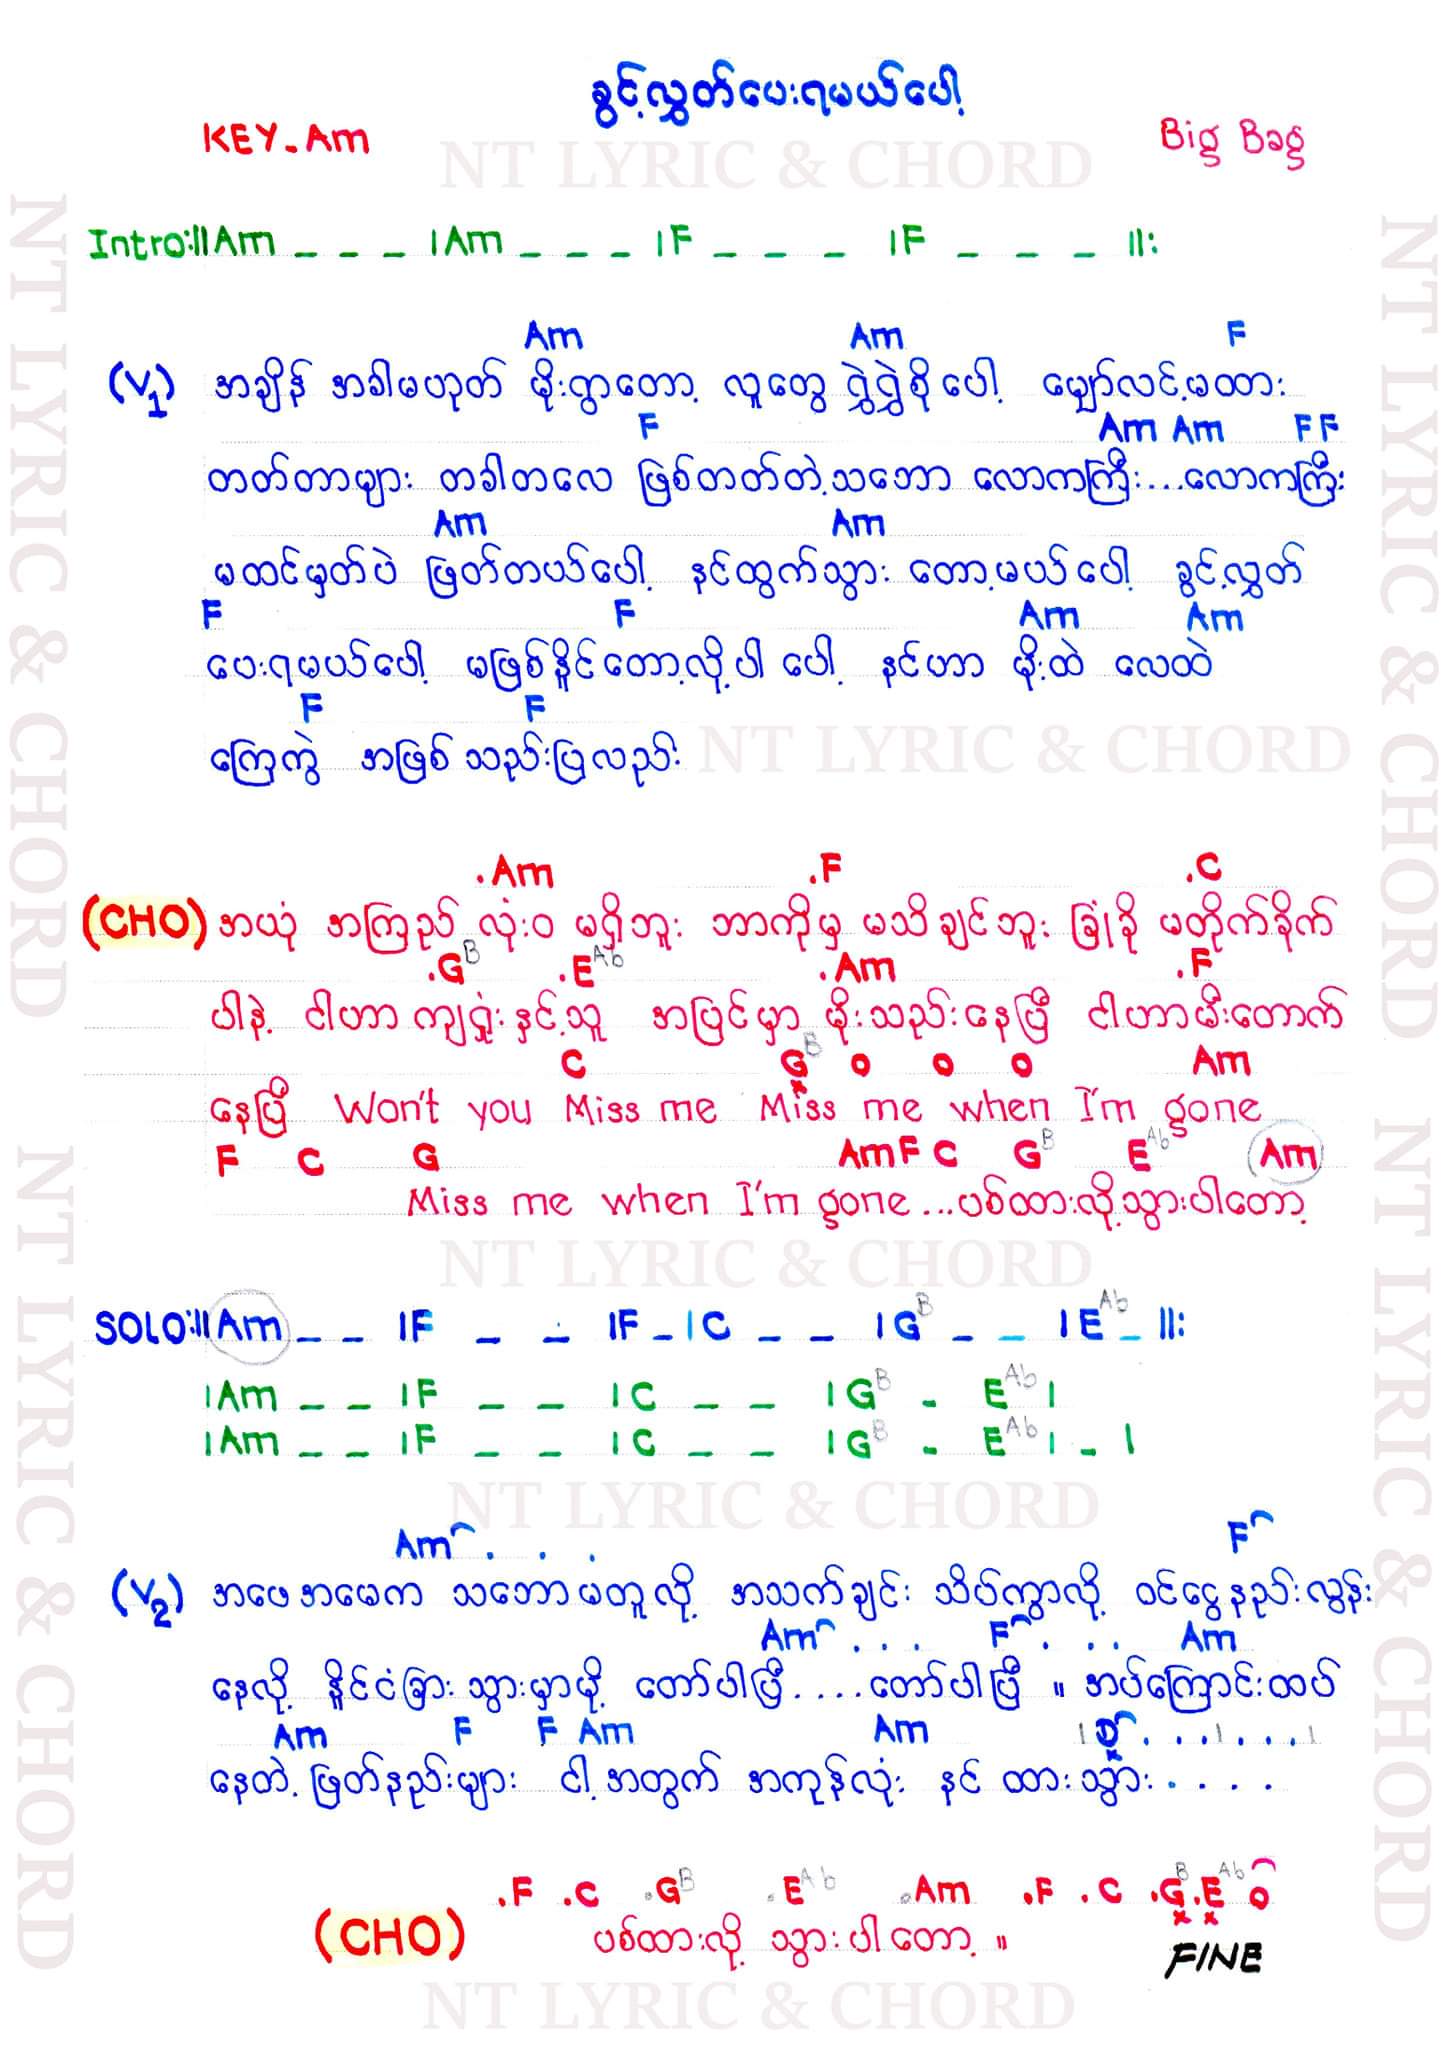 ခွင့်လွှတ်ပေးရမယ်ပေါ့
KEY-Am
Big Bag
NT LYRIC & CHORD
Intro:||Am _ _ _ |Am _ _ _ |F _ _ _ |F _ _ _ ||:
Am Am F
(V1) အချိန် အခါမဟုတ် မိုးရွာတော့ လူတွေ ရွှဲရွှဲစိုပေါ့ မျှော်လင့်မထား
F Am Am F F
တတ်တာများ တခါတလေ ဖြစ်တတ်တဲ့သဘော လောကကြီး...လောကကြီး
Am Am
မထင်မှတ်ပဲ ဖြတ်တယ်ပေါ့ နင်ထွက်သွား တော့မယ်ပေါ့ ခွင့်လွှတ်
F F Am Am
ပေးရမယ်ပေါ့ မဖြစ်နိုင်တော့လို့ပါ ပေါ့ နင်ဟာ မိုးထဲ လေထဲ
F F
ကြေကွဲ အဖြစ်သည်းပြလည်း
NT LYRIC & CHORD
.Am .F .C
(CHO) အယုံ အကြည် လုံးဝ မရှိဘူး ဘာကိုမှ မသိချင်ဘူး ခြုံခို မတိုက်ခိုက်
.G B .E Ab .Am .F
ပါနဲ့ ငါဟာ ကျရှုံးနှင့်သူ အပြင်မှာ မိုးသည်းနေပြီ ငါဟာမီးတောက်
C G B o o o Am
နေပြီ Won't you Miss me Miss me when I'm gone
F C G Am F C G B E Ab Am
Miss me when I'm gone...ပစ်ထားလို့သွားပါတော့
NT LYRIC & CHORD
SOLO:||Am _ _ |F _ _ |F _|C _ _ |G B _ _ |E Ab _ ||:
|Am _ _ |F _ _ |C _ _ |G B - E Ab |
|Am _ _ |F _ _ |C _ _ |G B - E Ab | - |
NT LYRIC & CHORD
Am . . . F
(V2) အဖေအမေက သဘောမတူလို့ အသက်ချင်း သိပ်ကွာလို့ ဝင်ငွေနည်းလွန်း
Am . . . F . . . Am
နေလို့ နိုင်ငံခြားသွားမှာမို့ တော်ပါပြီ....တော်ပါပြီ ။ အပ်ကြောင်းထပ်
Am F F Am Am | . . . | . . . |
နေတဲ့ ဖြတ်နည်းများ ငါ့အတွက် အကုန်လုံး နင် ထားသွား....
.F .C .G B .E Ab .Am .F .C .G B .E Ab o
(CHO) ပစ်ထားလို့ သွားပါတော့ ။
FINE
NT LYRIC & CHORD
NT LYRIC & CHORD
NT LYRIC & CHORD
NT LYRIC & CHORD
NT LYRIC & CHORD